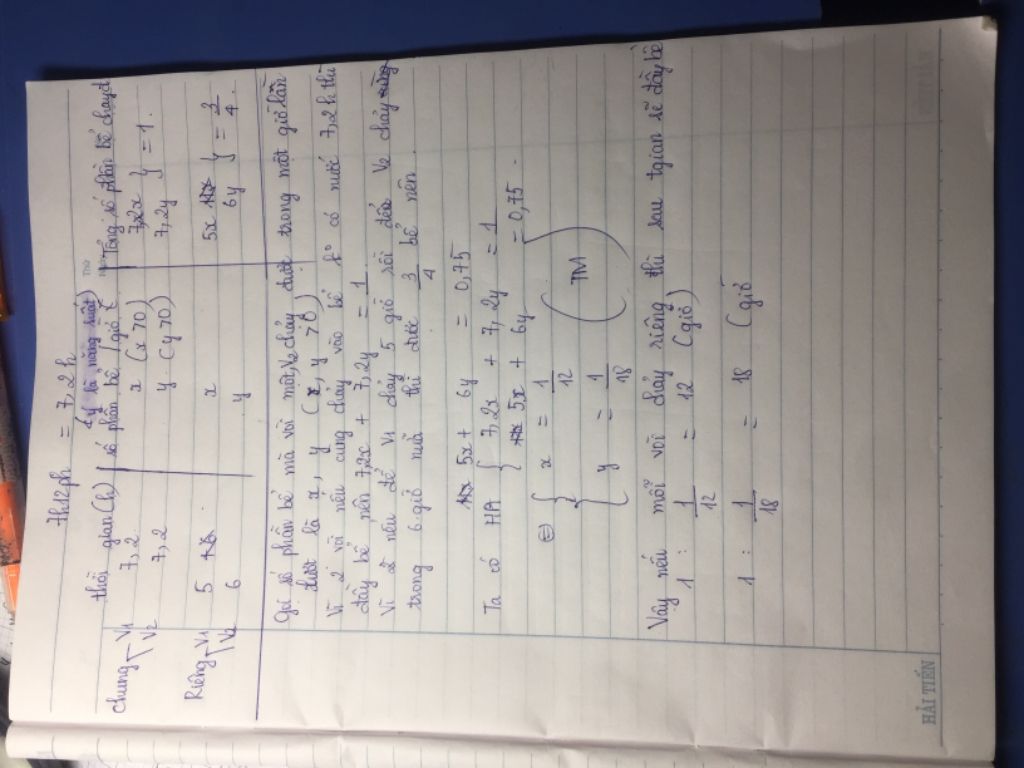 7h12ph = 7,2h
(y là năng suất)
thời gian(h) số phần bể /giờ Tổng số phần bể chảy đ
Chung V1 7,2 x (x>0) 7,2x } = 1.
V2 7,2 y (y>0) 7,2y
Riêng V1 5 x 5x } = 3/4.
V2 6 y 6y
Gọi số phần bể mà vòi một, V2 chảy được trong một giờ lần
lượt là x, y (x, y >0)
Vì 2 vòi nếu cùng chảy vào bể có nước 7,2h thì
đầy bể nên 7,2x + 7,2y = 1
Vì nếu để V1 chảy 5 giờ rồi V2 chảy
trong 6 giờ nữa thì được 3/4 bể nên
5x + 6y = 0,75
Ta có HPT { 7,2x + 7,2y = 1
5x + 6y = 0,75.
⇔ { x = 1/12
y = 1/18
(TM)
Vậy nếu mỗi vòi chảy riêng thì sau tgian sẽ đầy bể
1 : 1/12 = 12 (giờ)
1 : 1/18 = 18 (giờ
HẢI TIẾN